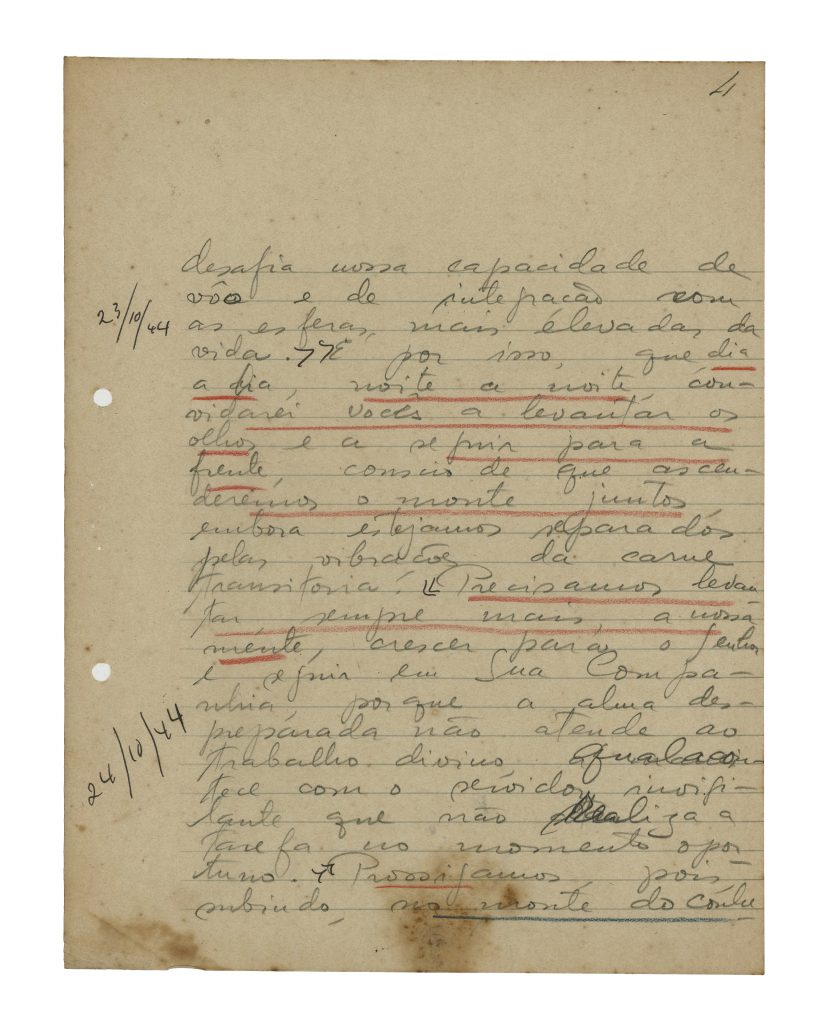 4
desafia nossa capacidade de
vôo e de integração com
23/10/44
as esferas mais élevadas da
vida. É, por isso, que dia
a dia, noite a noite, con-
vidarei vocês a levantar os
olhos e a seguir para a
frente, conscio de que ascen-
deremos o monte juntos
embora estejamos separados
pelas vibrações da carne
transitoria! Precisamos levan
tar, sempre mais, a nossa
mente, crescer para o Senhor
e seguir em Sua Compa-
nhia, porque a alma des-
preparada não atende ao
24/10/44
trabalho divino qual acon-
tece com o servidor invigi-
lante que não realiza a
tarefa no momento opor
tuno. Prossigamos, pois,
subindo, no monte do conhe